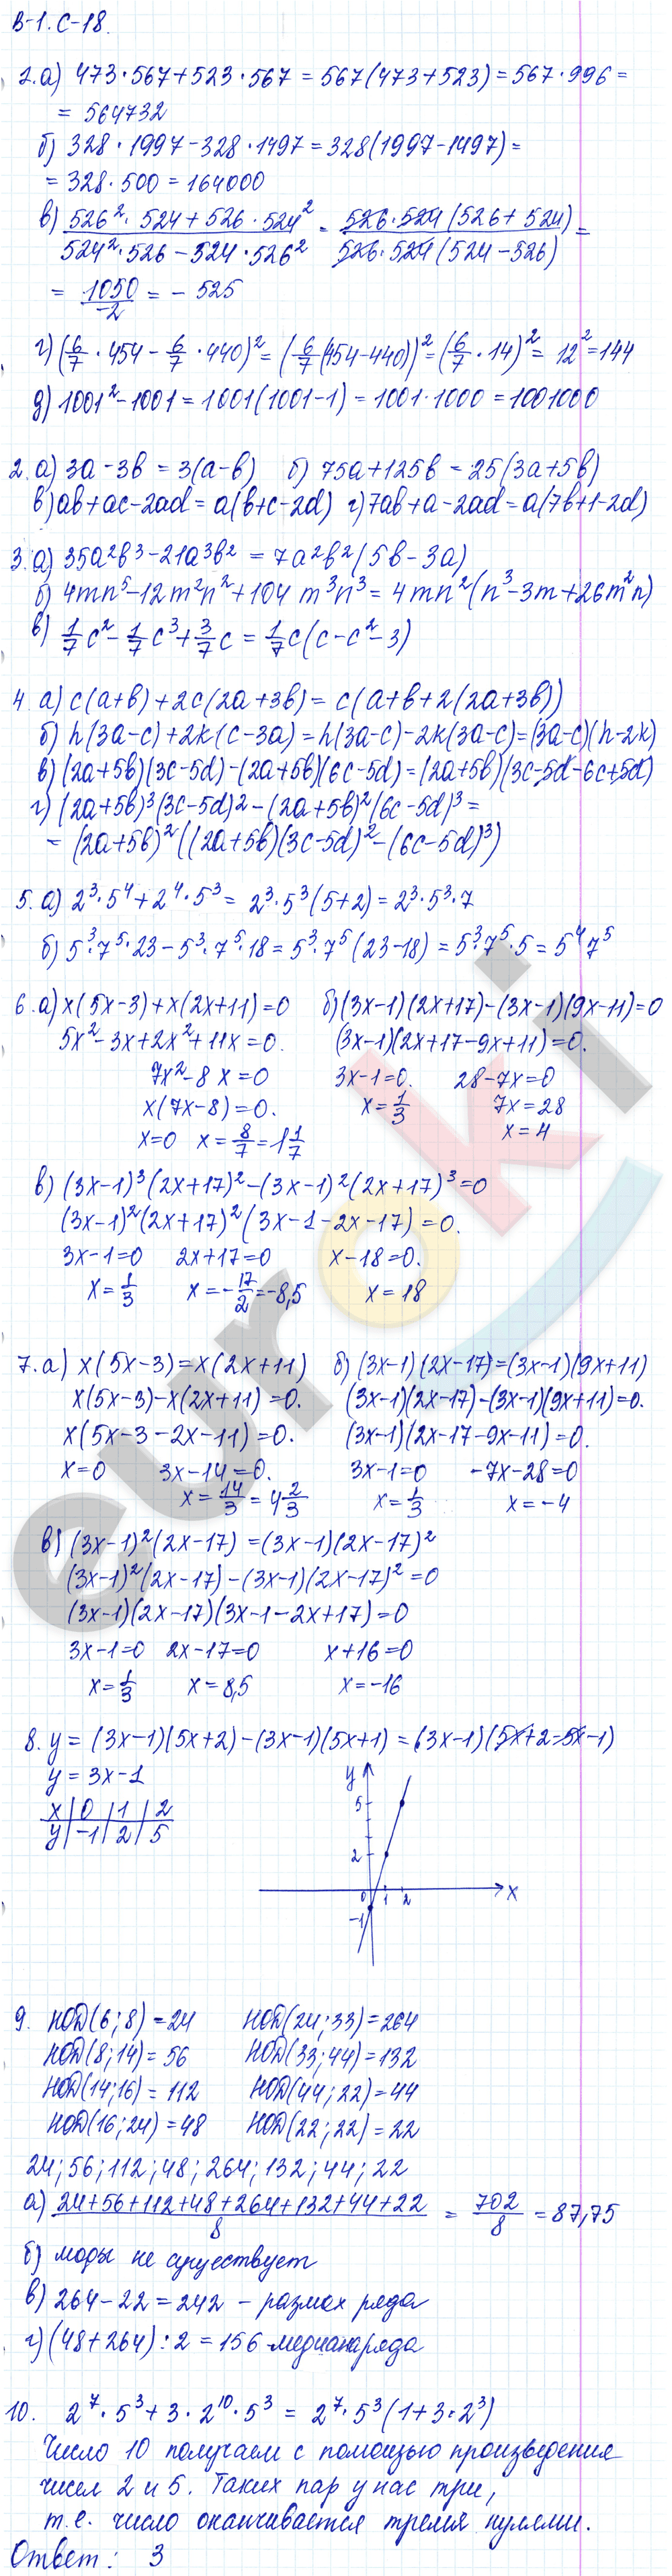 В-1. С-18.
1. а) 473·567+523·567 = 567(473+523) = 567·996 =
= 564732
б) 328·1997-328·1497 = 328(1997-1497) =
= 328·500 = 164000
в) (526²·524+526·524²)/(524²·526-524·526²) = (526·524(526+524))/(526·524(524-526)) =
= 1050/-2 = -525
г) (6/7·454-6/7·440)² = (6/7(454-440))² = (6/7·14)² = 12² = 144
д) 1001²-1001 = 1001(1001-1) = 1001·1000 = 1001000
2. а) 3a-3b = 3(a-b) б) 75a+125b = 25(3a+5b)
в) ab+ac-2ad = a(b+c-2d) г) 7ab+a-2ad = a(7b+1-2d)
3. а) 35a²b³-21a³b² = 7a²b²(5b-3a)
б) 4mn⁵-12m²n²+104m³n³ = 4mn²(n³-3m+26m²n)
в) 1/7c²-1/7c³+3/7c = 1/7c(c-c²-3)
4. а) c(a+b)+2c(2a+3b) = c(a+b+2(2a+3b))
б) h(3a-c)+2k(c-3a) = h(3a-c)-2k(3a-c) = (3a-c)(h-2k)
в) (2a+5b)(3c-5d)-(2a+5b)(6c-5d) = (2a+5b)(3c-5d-6c+5d)
г) (2a+5b)³(3c-5d)²-(2a+5b)²(6c-5d)³ =
= (2a+5b)²((2a+5b)(3c-5d)²-(6c-5d)³)
5. а) 2³·5⁴+2⁴·5³ = 2³·5³(5+2) = 2³·5³·7
б) 5³·7⁵·23-5³·7⁵·18 = 5³·7⁵(23-18) = 5³·7⁵·5 = 5⁴7⁵
6. а) x(5x-3)+x(2x+11)=0 б) (3x-1)(2x+17)-(3x-1)(9x-11)=0
5x²-3x+2x²+11x=0. (3x-1)(2x+17-9x+11)=0.
7x²-8x=0 3x-1=0. 28-7x=0
x(7x-8)=0. x=1/3 7x=28
x=0 x=8/7=1 1/7 x=4
в) (3x-1)³(2x+17)²-(3x-1)²(2x+17)³=0
(3x-1)²(2x+17)²(3x-1-2x-17)=0.
3x-1=0 2x+17=0 x-18=0.
x=1/3 x=-17/2=-8,5 x=18
7. а) x(5x-3)=x(2x+11) б) (3x-1)(2x-17)=(3x-1)(9x+11)
x(5x-3)-x(2x+11)=0. (3x-1)(2x-17)-(3x-1)(9x+11)=0.
x(5x-3-2x-11)=0. (3x-1)(2x-17-9x-11)=0.
x=0 3x-14=0. 3x-1=0 -7x-28=0
x=14/3=4 2/3 x=1/3 x=-4
в) (3x-1)²(2x-17)=(3x-1)(2x-17)²
(3x-1)²(2x-17)-(3x-1)(2x-17)²=0
(3x-1)(2x-17)(3x-1-2x+17)=0
3x-1=0 2x-17=0 x+16=0
x=1/3 x=8,5 x=-16
8. y=(3x-1)(5x+2)-(3x-1)(5x+1)=(3x-1)(5x+2-5x-1)
y=3x-1
x|0|1|2
y|-1|2|5
y
5
2
0 1 2 x
-1
9. НОД(6;8)=24 НОД(24;33)=264
НОД(8;14)=56 НОД(33;44)=132
НОД(14;16)=112 НОД(44;22)=44
НОД(16;24)=48 НОД(22;22)=22
24; 56; 112; 48; 264; 132; 44; 22
а) (24+56+112+48+264+132+44+22)/8 = 702/8 = 87,75
б) моды не существует
в) 264-22=242 - размах ряда
г) (48+264):2=156 - медиана ряда
10. 2⁷·5³+3·2¹⁰·5³ = 2⁷·5³(1+3·2³)
Число 10 получаем с помощью произведения
чисел 2 и 5. Таких пар у нас три,
т.е. число оканчивается тремя нулями.
Ответ: 3
euroki